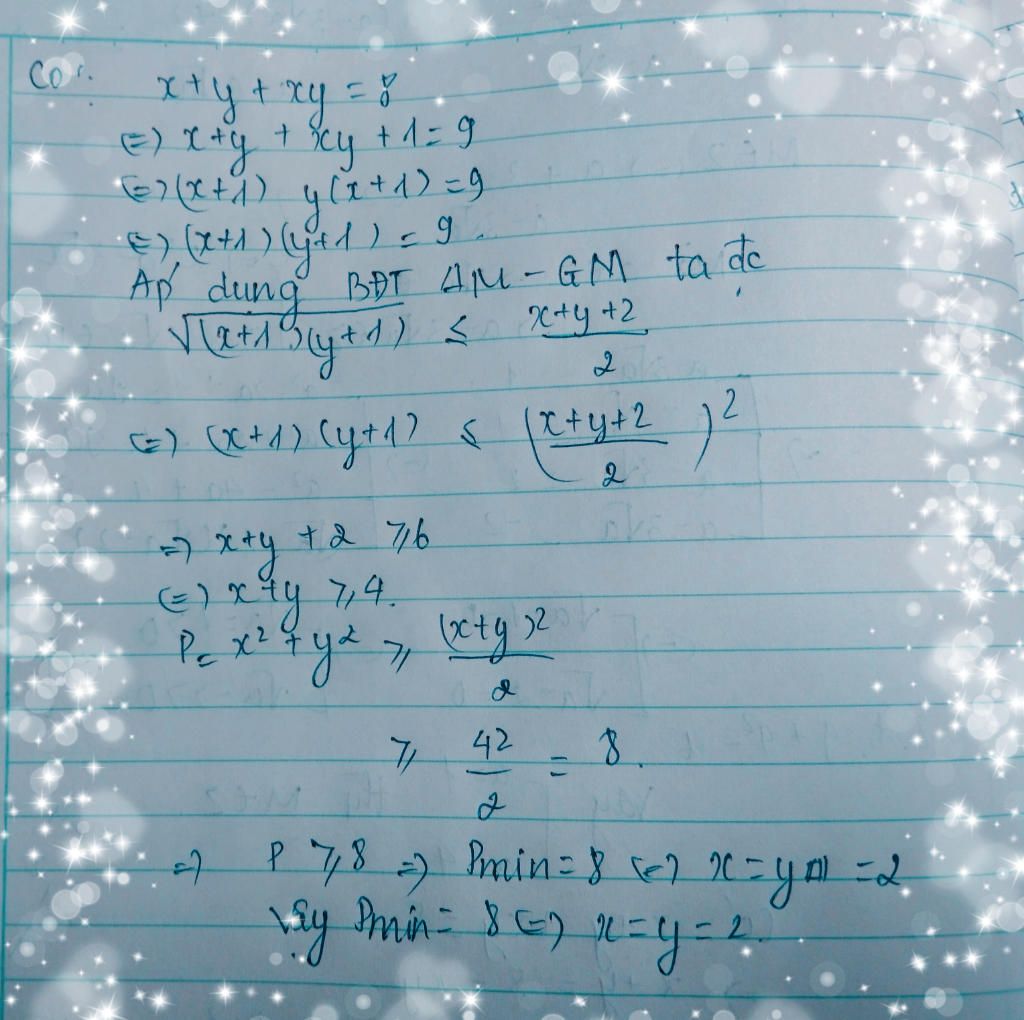 Có: x+y + xy = 8
(=) x+y + xy + 1 = 9
(=) (x+1) y(x+1) = 9
(=) (x+1)(y+1) = 9.
Áp dụng BĐT AM - GM ta đc
√(x+1)(y+1) ≤ x+y+2 / 2
(=) (x+1)(y+1) ≤ (x+y+2 / 2)²
=) x+y + 2 ≥ 6
(=) x+y ≥ 4.
P = x² + y² ≥ (x+y)² / 2
≥ 42 / 2 = 8.
=) P ≥ 8 =) Pmin = 8 (=) x = y = 2
Vậy Pmin = 8 (=) x = y = 2.